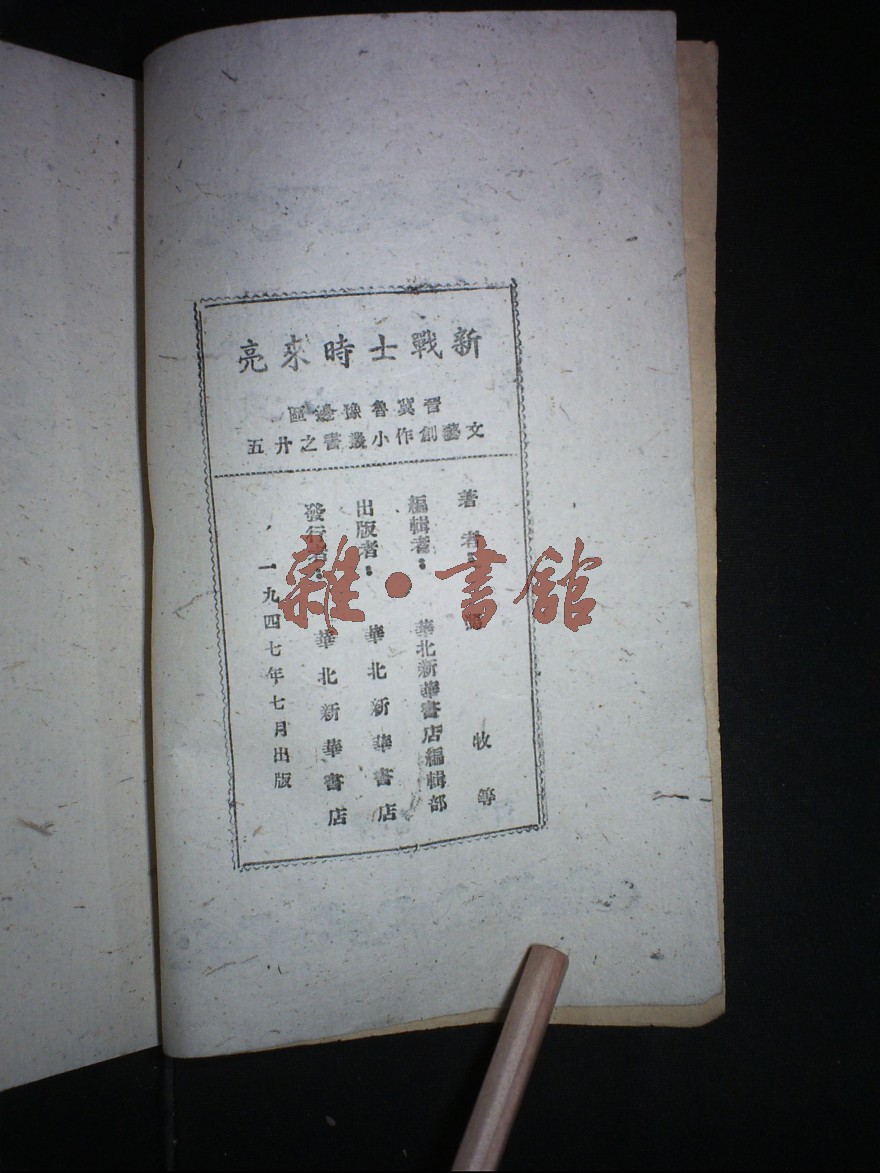 新戰士時來亮
晋冀魯豫邊區
文藝創作小叢書之廿五
著者： 牧等
編輯者：華北新華書店編輯部
出版者：華北新華書店
發行者：華北新華書店
一九四七年七月出版
雜·書館